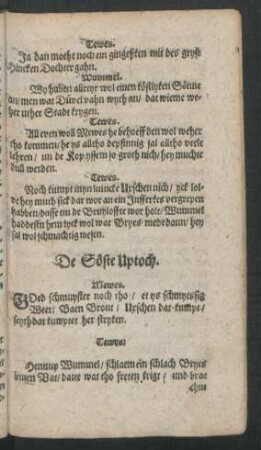 Tewes.
Ja dan mothe noch ein gingesken mit des gryse
Hincken Dochter gahn.
Wummel.
Wy habbn allenr wol einen köstlyken Sönne
an/ men war Düvel vahn wyth an/ dat wieme we-
her uther Stade krygen.
Tewes.
All even woll Mewes he behoeff den wol weher
tho kommen/ he ys altho depsinnig jal altho veele
lehren/ un de Kop yssem so groth nich/ hey muchte
dull werden.
Tewes.
Noch kumpt myn nincke Urschen nich/ yck lol-
de hey muth sick dar wor an ein Juffertes vergrepen
habben/ dasse nu de Bruyloffte wor hole/ Wummel
haddestu hem tyck wol wat Bryes mededaun/ hey
sal wol schmachtig wesen.
De Söste Uptoch.
Mewes.
GOed schmuyster noch tho/ et ys schmytssig
Weer/ Baen Brout/ Urschen dar kumps/
seyth dar kumpter her stryken.
Tewes:
Hennup Wummel/ schlaem ein schlach Bryes
innen Vat/ datte wat tho freten krigt/ und brae
chm